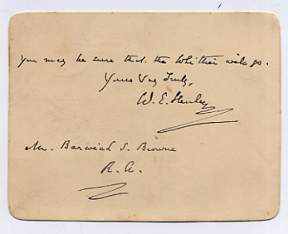 You may be sure that the Whittier will go.
Yours Very Truly,
W. E. Henley
Mr. Barwick S. Browne
R. A.